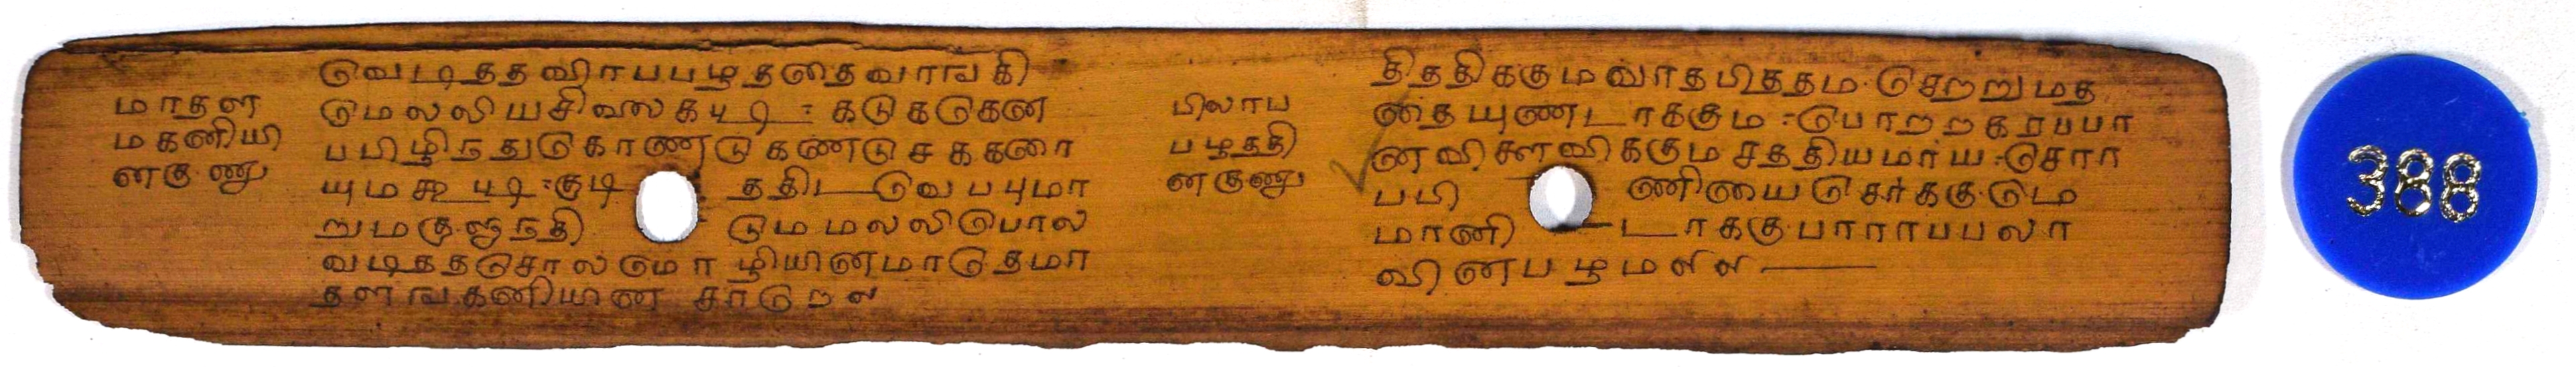 மாதள
மகனியி
னகுணு
வெடித்தவிராபபழததைவாஙகி
மெலலியசிலைகயடி: கடுகடுகென
பபிழிநதுகொணடுகணடுசககரை
யுமகூயடி:குடி ததிடவெபபுமா
றுமகுளுநதி மெமலலிபொல
வடிததசொலமொழியினமாதெமா
தளஙகனியின சாறெ
பிலாப
பழததி
னகுணு
திததிககுமவாதபிததம.செறறுமத
தையுணடாககும:பொறறகரபபா
னவிளைவிககுமசததியமாய:சோர
பபி ணியைசெரககுமெ
மானி டாககு.பாராபபலா
வினபழம
388